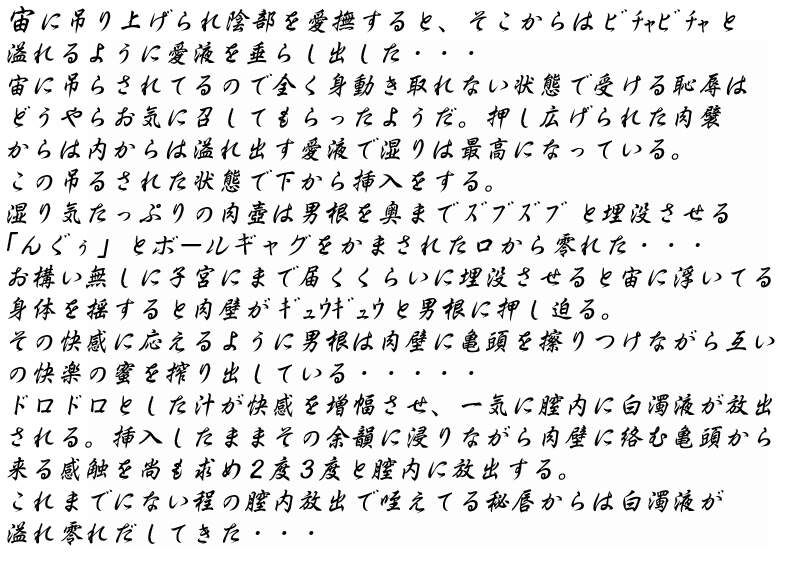 宙に吊り上げられ陰部を愛撫すると、そこからはﾋﾞﾁｬﾋﾞﾁｬと
溢れるように愛液を垂らし出した・・・
宙に吊らされてるので全く身動き取れない状態で受ける恥辱は
どうやらお気に召してもらったようだ。押し広げられた肉襞
からは内からは溢れ出す愛液で湿りは最高になっている。
この吊るされた状態で下から挿入をする。
湿り気たっぷりの肉壺は男根を奥までズブズブと埋没させる
「んぐぅ」とボールギャグをかまされた口から零れた・・・
お構い無しに子宮にまで届くくらいに埋没させると宙に浮いてる
身体を揺すると肉壁がｷﾞｭｳｷﾞｭｳと男根に押し迫る。
その快感に応えるように男根は肉壁に亀頭を擦りつけながら互い
の快楽の蜜を搾り出している・・・・・
ドロドロとした汁が快感を増幅させ、一気に膣内に白濁液が放出
される。挿入したままその余韻に浸りながら肉壁に絡む亀頭から
来る感触を尚も求め２度３度と膣内に放出する。
これまでにない程の膣内放出で咥えてる秘唇からは白濁液が
溢れ零れだしてきた・・・